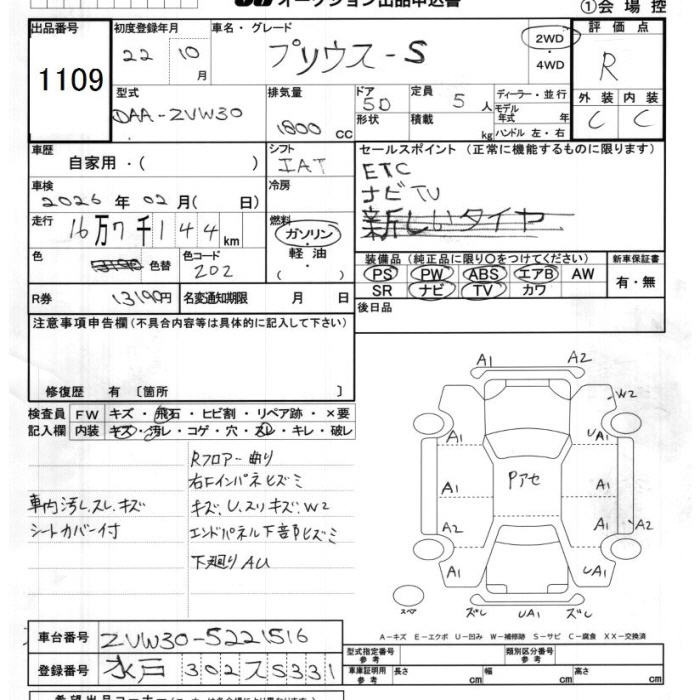 オークション出品申込書
①会場控
出品番号
1109
初度登録年月
22 10月
車名・グレード
プリウス-S
2WD
・
4WD
評価点
R
外装 内装
C C
型式
DAA-ZVW30
排気量
1800 cc
ドア
5D
形状
定員
5人
積載
kg
ディーラー・並行
モデル年式 年
ハンドル 左・右
車歴
自家用・( )
シフト
IAT
セールスポイント (正常に機能するものに限ります)
ETC
ナビ TV
新しいタイヤ
車検
2026年02月( 日)
冷房
走行
16万7千144km
燃料
ガソリン
・
軽油
( ・ )
色
色替
色コード
202
装備品 (純正品に限り○をつけてください)
PS PW ABS エアB AW
SR ナビ TV カワ
新車保証書
有・無
R券
13190円
名変通知期限 月 日
後日品
注意事項申告欄(不具合内容等は具体的に記入して下さい)
修復歴 有〔箇所 〕
検査員記入欄
FW キズ・飛石・ヒビ割・リペア跡・×要
内装 キズ・汚レ・コゲ・穴・スレ・キレ・破レ
Rフロアー曲り
右Fインパネヒズミ
車内汚レ.スレ.キズ
キズ、U、スリキズ、W2
シートカバー付
エンドパネル下部ヒズミ
下廻りAU
A1 A2
W2
A1 UA1
A1 A1
Pアセ
A1 A1
A2 UA2
A1 UA1
スペア
ズレ UA1 ズレ
A-キズ E-エクボ U-凹み W-補修跡 S-サビ C-腐食 XX-交換済
車台番号
ZVW30-5221516
登録番号
水戸 302 ス 5331
型式指定番号
参考
類別区分番号
参考
車庫証明用
参考
長さ cm 幅 cm 高さ cm